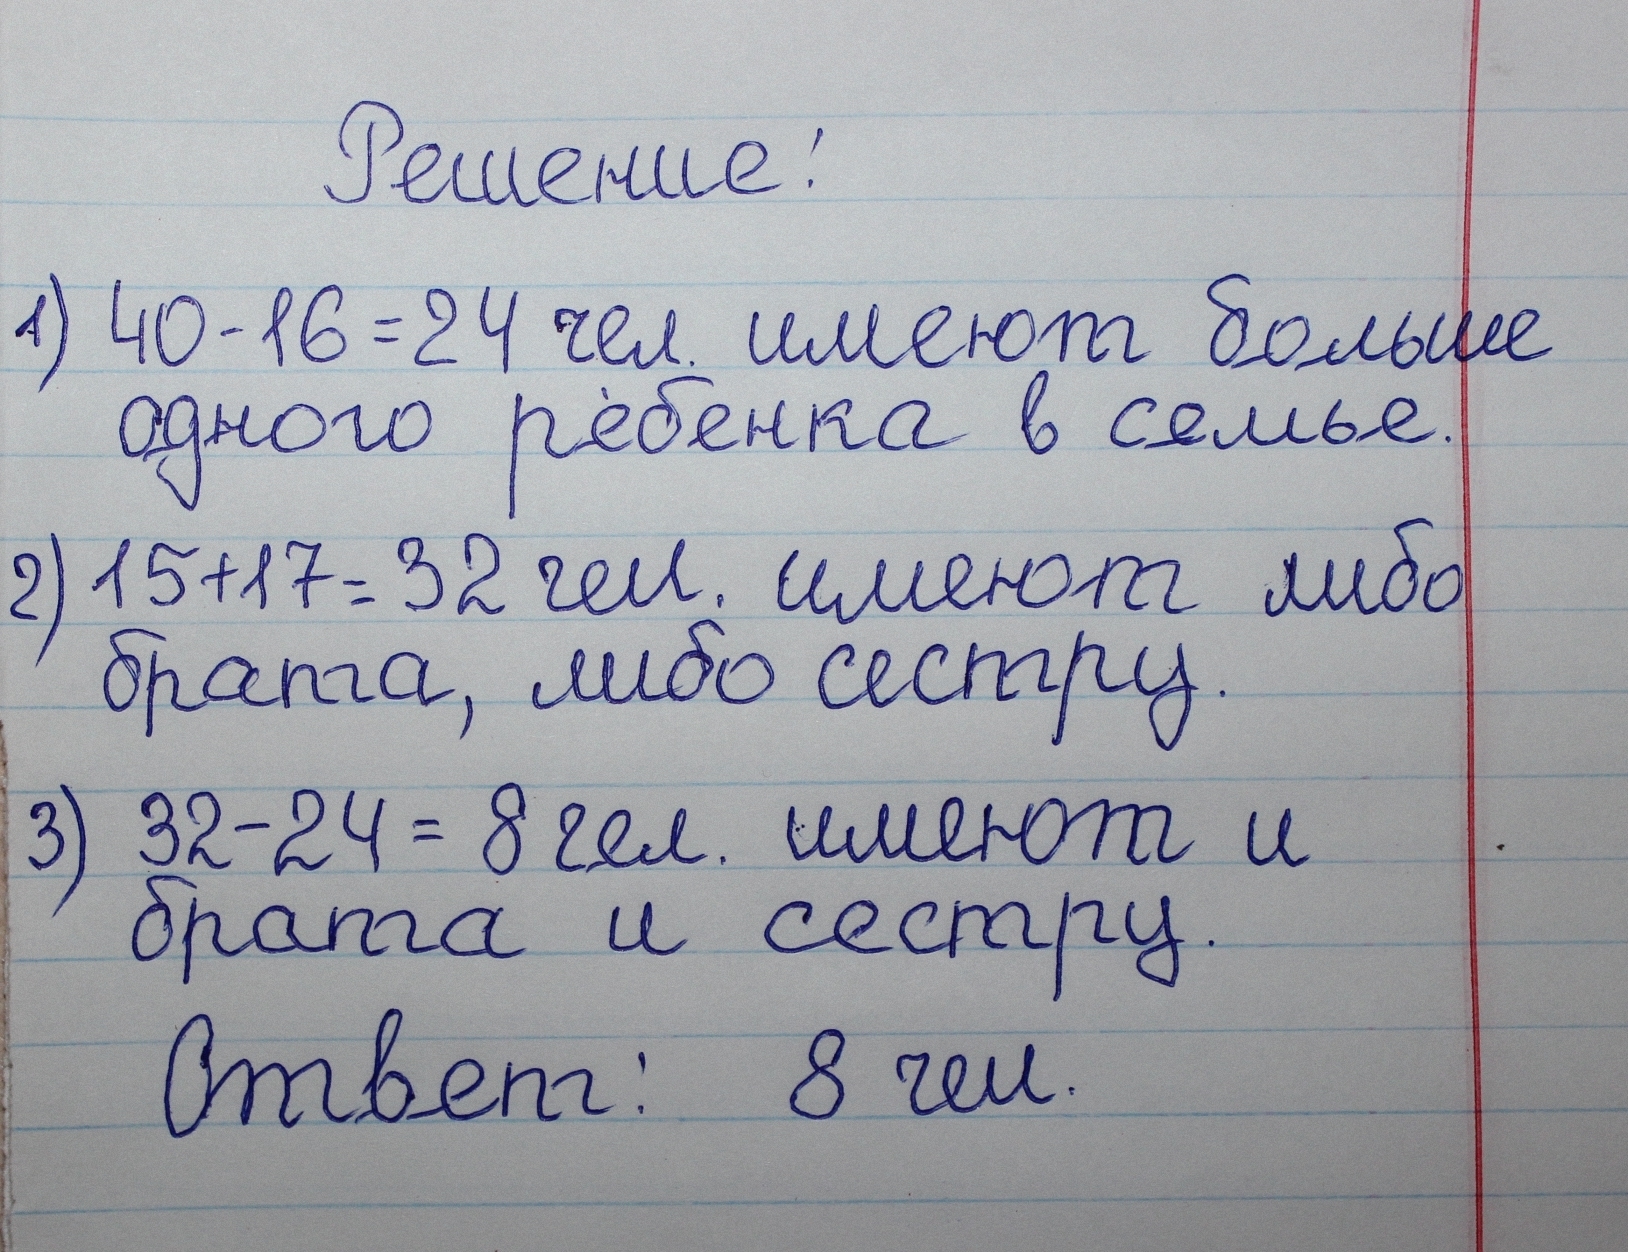 Решение:
1) 40-16=24 чел. имеют больше
одного ребенка в семье.
2) 15+17=32 чел. имеют либо
брата, либо сестру.
3) 32-24=8 чел. имеют и
брата и сестру.
Ответ: 8 чел.